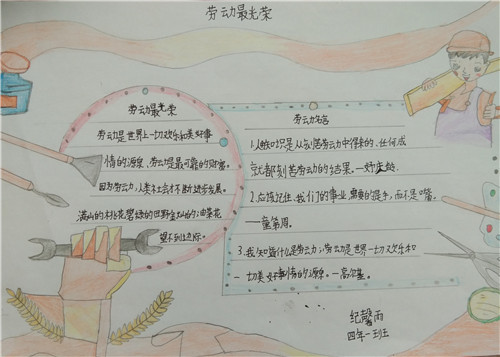 劳动最光荣
劳动最光荣
劳动是世界上一切欢乐和美好事
情的源泉、劳动是最可靠的财富。
因为劳动,人类社会才不断进步发展。
满山的桃花碧绿的田野金灿灿的油菜花
望不到边际。
劳动名言
1.知识是从刻苦劳动中得来的、任何成
就都刻苦劳动的结果。—
2.应该记住、我们的事业、需要的是手,而不是嘴。
—童第周。
3.我知道什么是劳动:劳动是世界一切欢乐和
一切美好事情的源泉。—高尔基。
纪馨雨
四年一班